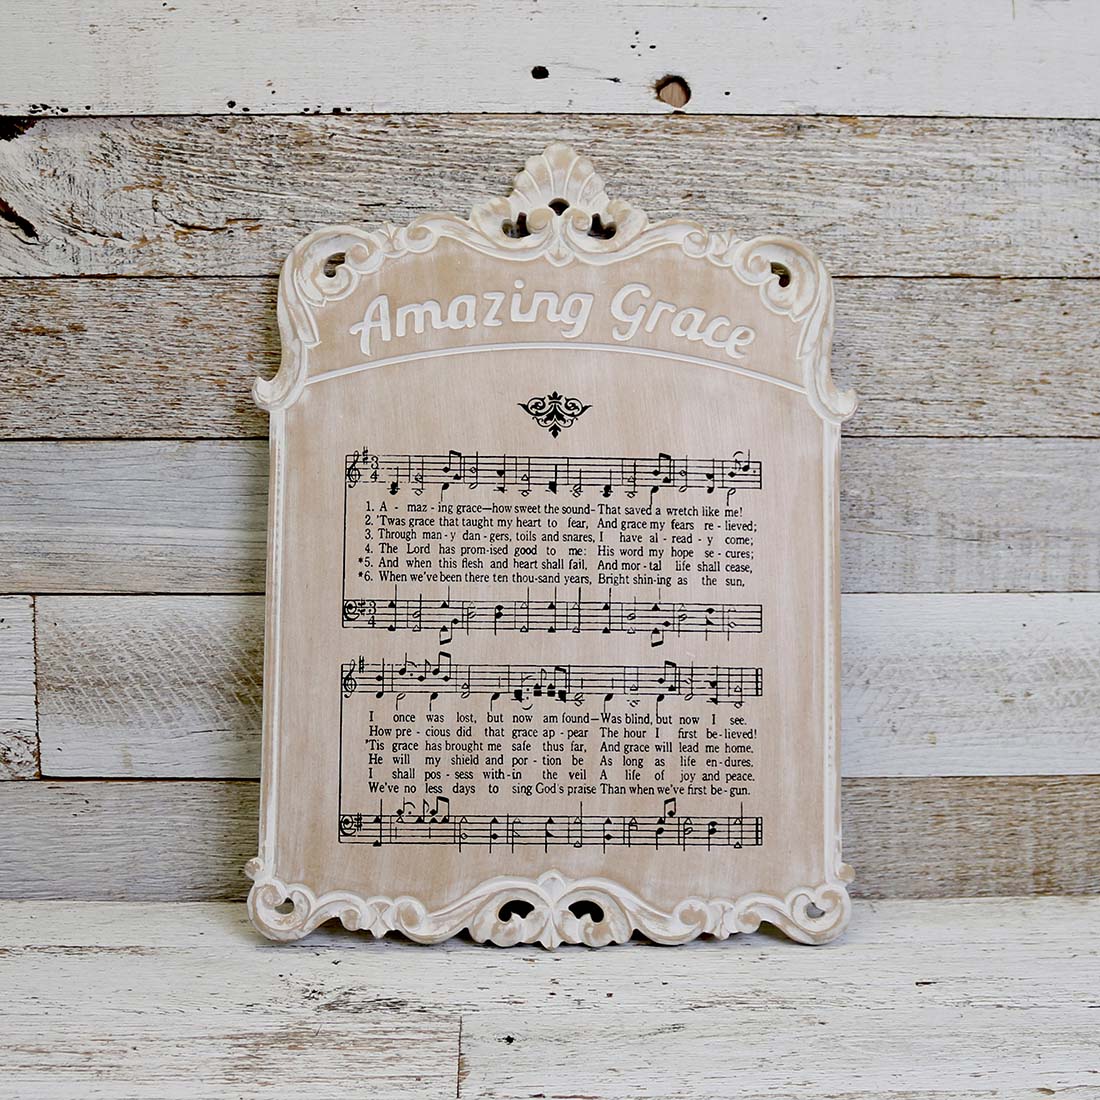 Amazing Grace
3
4
1. A - maz - ing grace—how sweet the sound- That saved a wretch like me!
2. 'Twas grace that taught my heart to fear, And grace my fears re - lieved;
3. Through man - y dan - gers, toils and snares, I have al - read - y come;
4. The Lord has prom-ised good to me: His word my hope se - cures;
*5. And when this flesh and heart shall fail, And mor - tal life shall cease,
*6. When we've been there ten thou-sand years, Bright shin-ing as the sun,
3
4
I once was lost, but now am found—Was blind, but now I see.
How pre - cious did that grace ap - pear The hour I first be - lieved!
'Tis grace has brought me safe thus far, And grace will lead me home.
He will my shield and por - tion be As long as life en - dures.
I shall pos - sess with-in the veil A life of joy and peace.
We've no less days to sing God's praise Than when we've first be - gun.